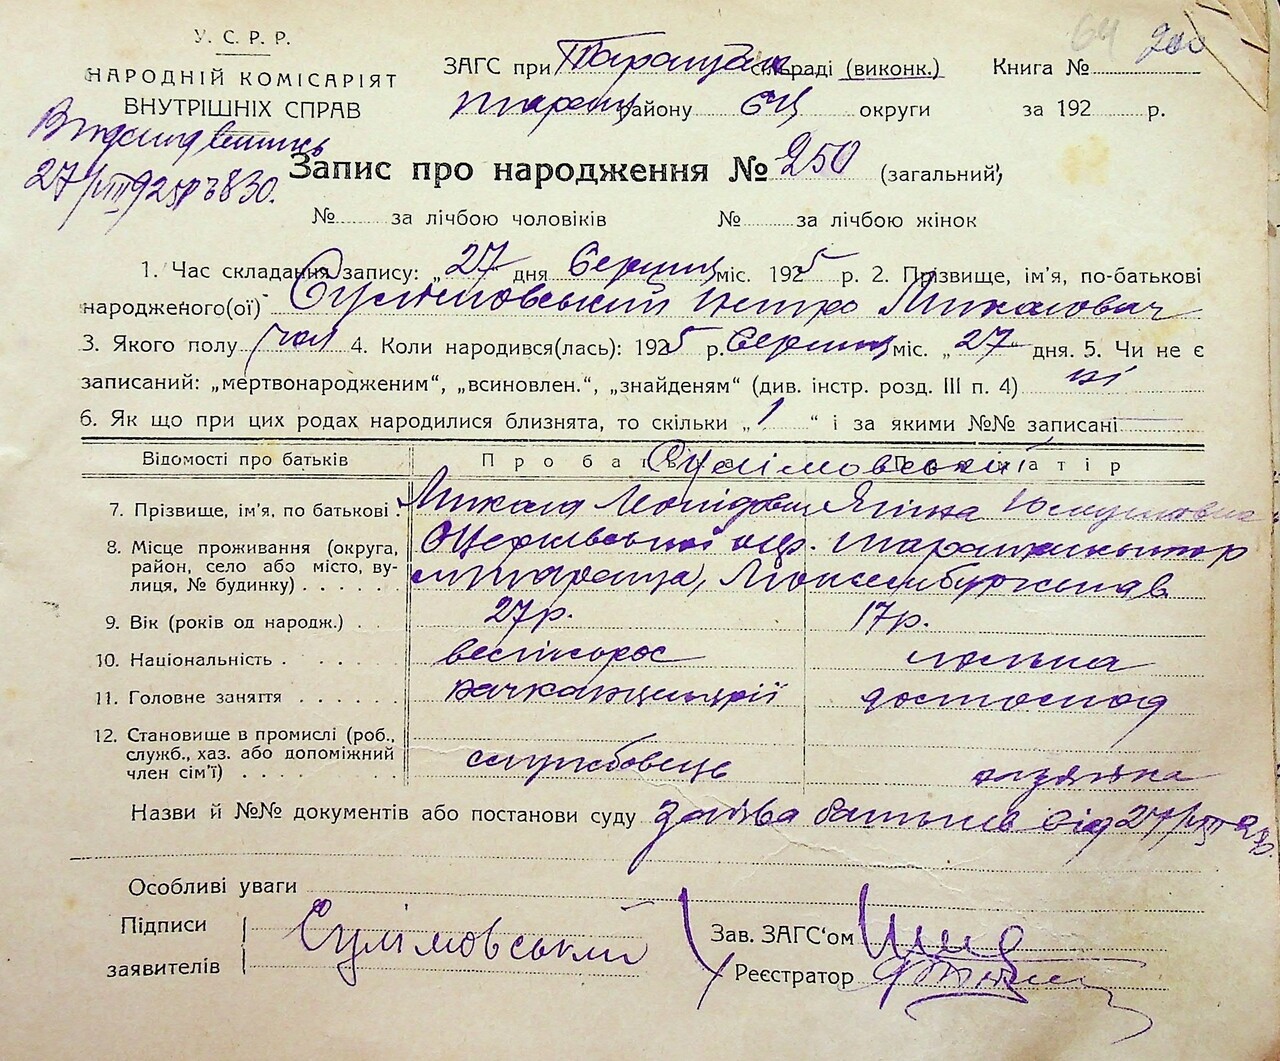 64 200
У. С. Р. Р.
НАРОДНІЙ КОМІСАРІЯТ
ВНУТРІШНІХ СПРАВ
ЗАГС при Таращан сільраді (виконк.) Книга №
Таращ району БЦ округи за 192 р.
27/VIII 925р № 830.
Запис про народження № 250 (загальний)
№ за лічбою чоловіків № за лічбою жінок
1. Час складання запису: „27" дня Серпня міс. 1925 р. 2. Прізвище, ім'я, по-батькові
народженого(ої) Сулімовський Петро Миколович
3. Якого полу чол 4. Коли народився(лась): 1925 р. Серпня міс. „27" дня. 5. Чи не є
записаний: „мертвонародженим", „всиновлен.", „знайденям" (див. інстр. розд. III п. 4) ні
6. Як що при цих родах народилися близнята, то скільки „1" і за якими №№ записані
Відомості про батьків Про батька Про матір
Сулімовський
7. Прізвище, ім'я, по батькові Микола Леонідович Яніна
8. Місце проживання (округа, район, село або місто, вулиця, № будинку) БЦерківської окр. Таращан
м Тараща,
9. Вік (років од народж.) 27р. 17р.
10. Національність великорос полька
11. Головне заняття начканцелярії домогоспод
12. Становище в промислі (роб., служб., хаз. або допоміжний член сім'ї) службовець хазяйка
Назви й №№ документів або постанови суду заява батьків від 27/VIII 25р.
Особливі уваги
Підписи
заявителів Сулімовський
Зав. ЗАГС'ом
Реєстратор